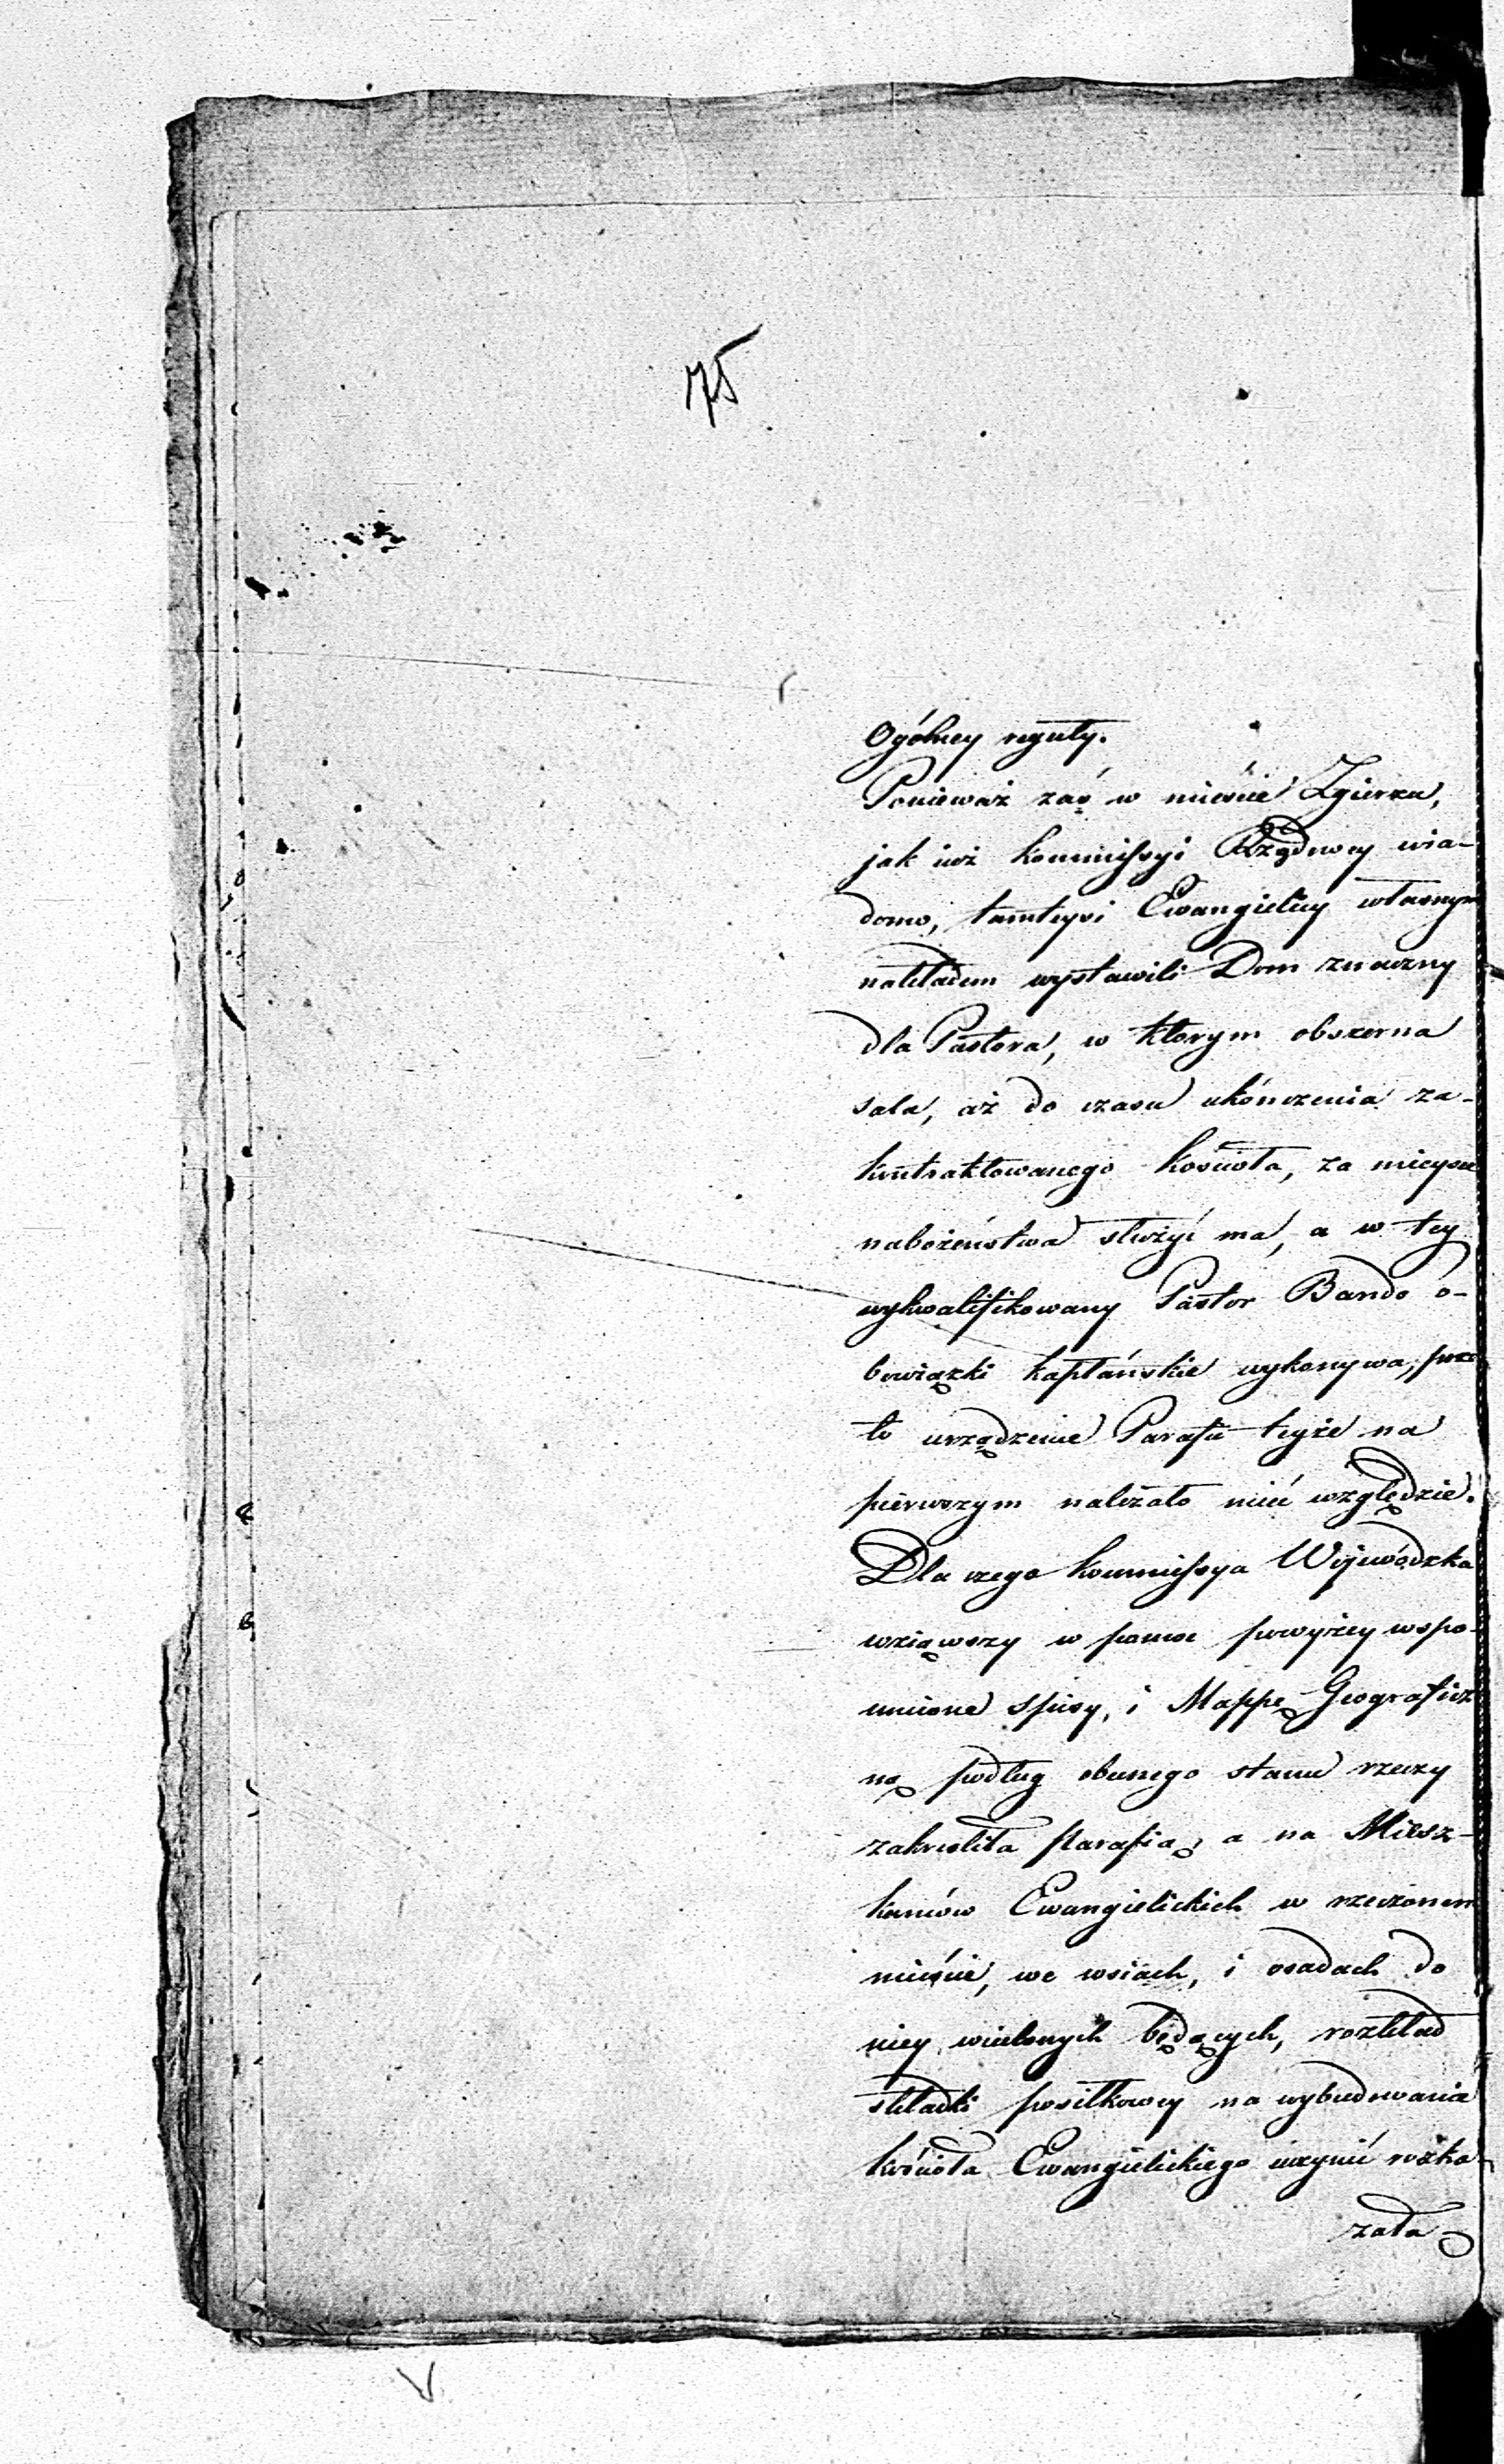 75
Ogólney reguły.
Ponieważ zaś w mieście Zgierzu,
jak iuż Kommissyi Rządowey wia-
domo, tamteysi Ewangielicy własnym
nakładem wystawili Dom znaczny
dla Pastora, w ktorym obszerna
sala, aż do czasu ukończenia za-
kontraktowanego Kościoła, za mieysce
nabożeństwa służyć ma, a w tey
wykwalifikowany Pastor Bando o-
bowiązki kapłańskie wykonywa, prze
to urządzenie Parafii teyże na
pierwszym należało mieć względzie.
Dla czego Kommissya Wojewódzka
wziąwszy w pomoc powyżey wspo-
mnione spisy, i Mappę Geograficz
ną podług obecnego stanu rzeczy
zakreśliła Parafią, a na Miesz-
kańców Ewangielickich w rzeczonem
mieście, we wsiach, i osadach do
niey wcielonych będących, rozkład
składki posiłkowey na wybudowanie
kościoła Ewangielickiego uczynić rozka-
zała